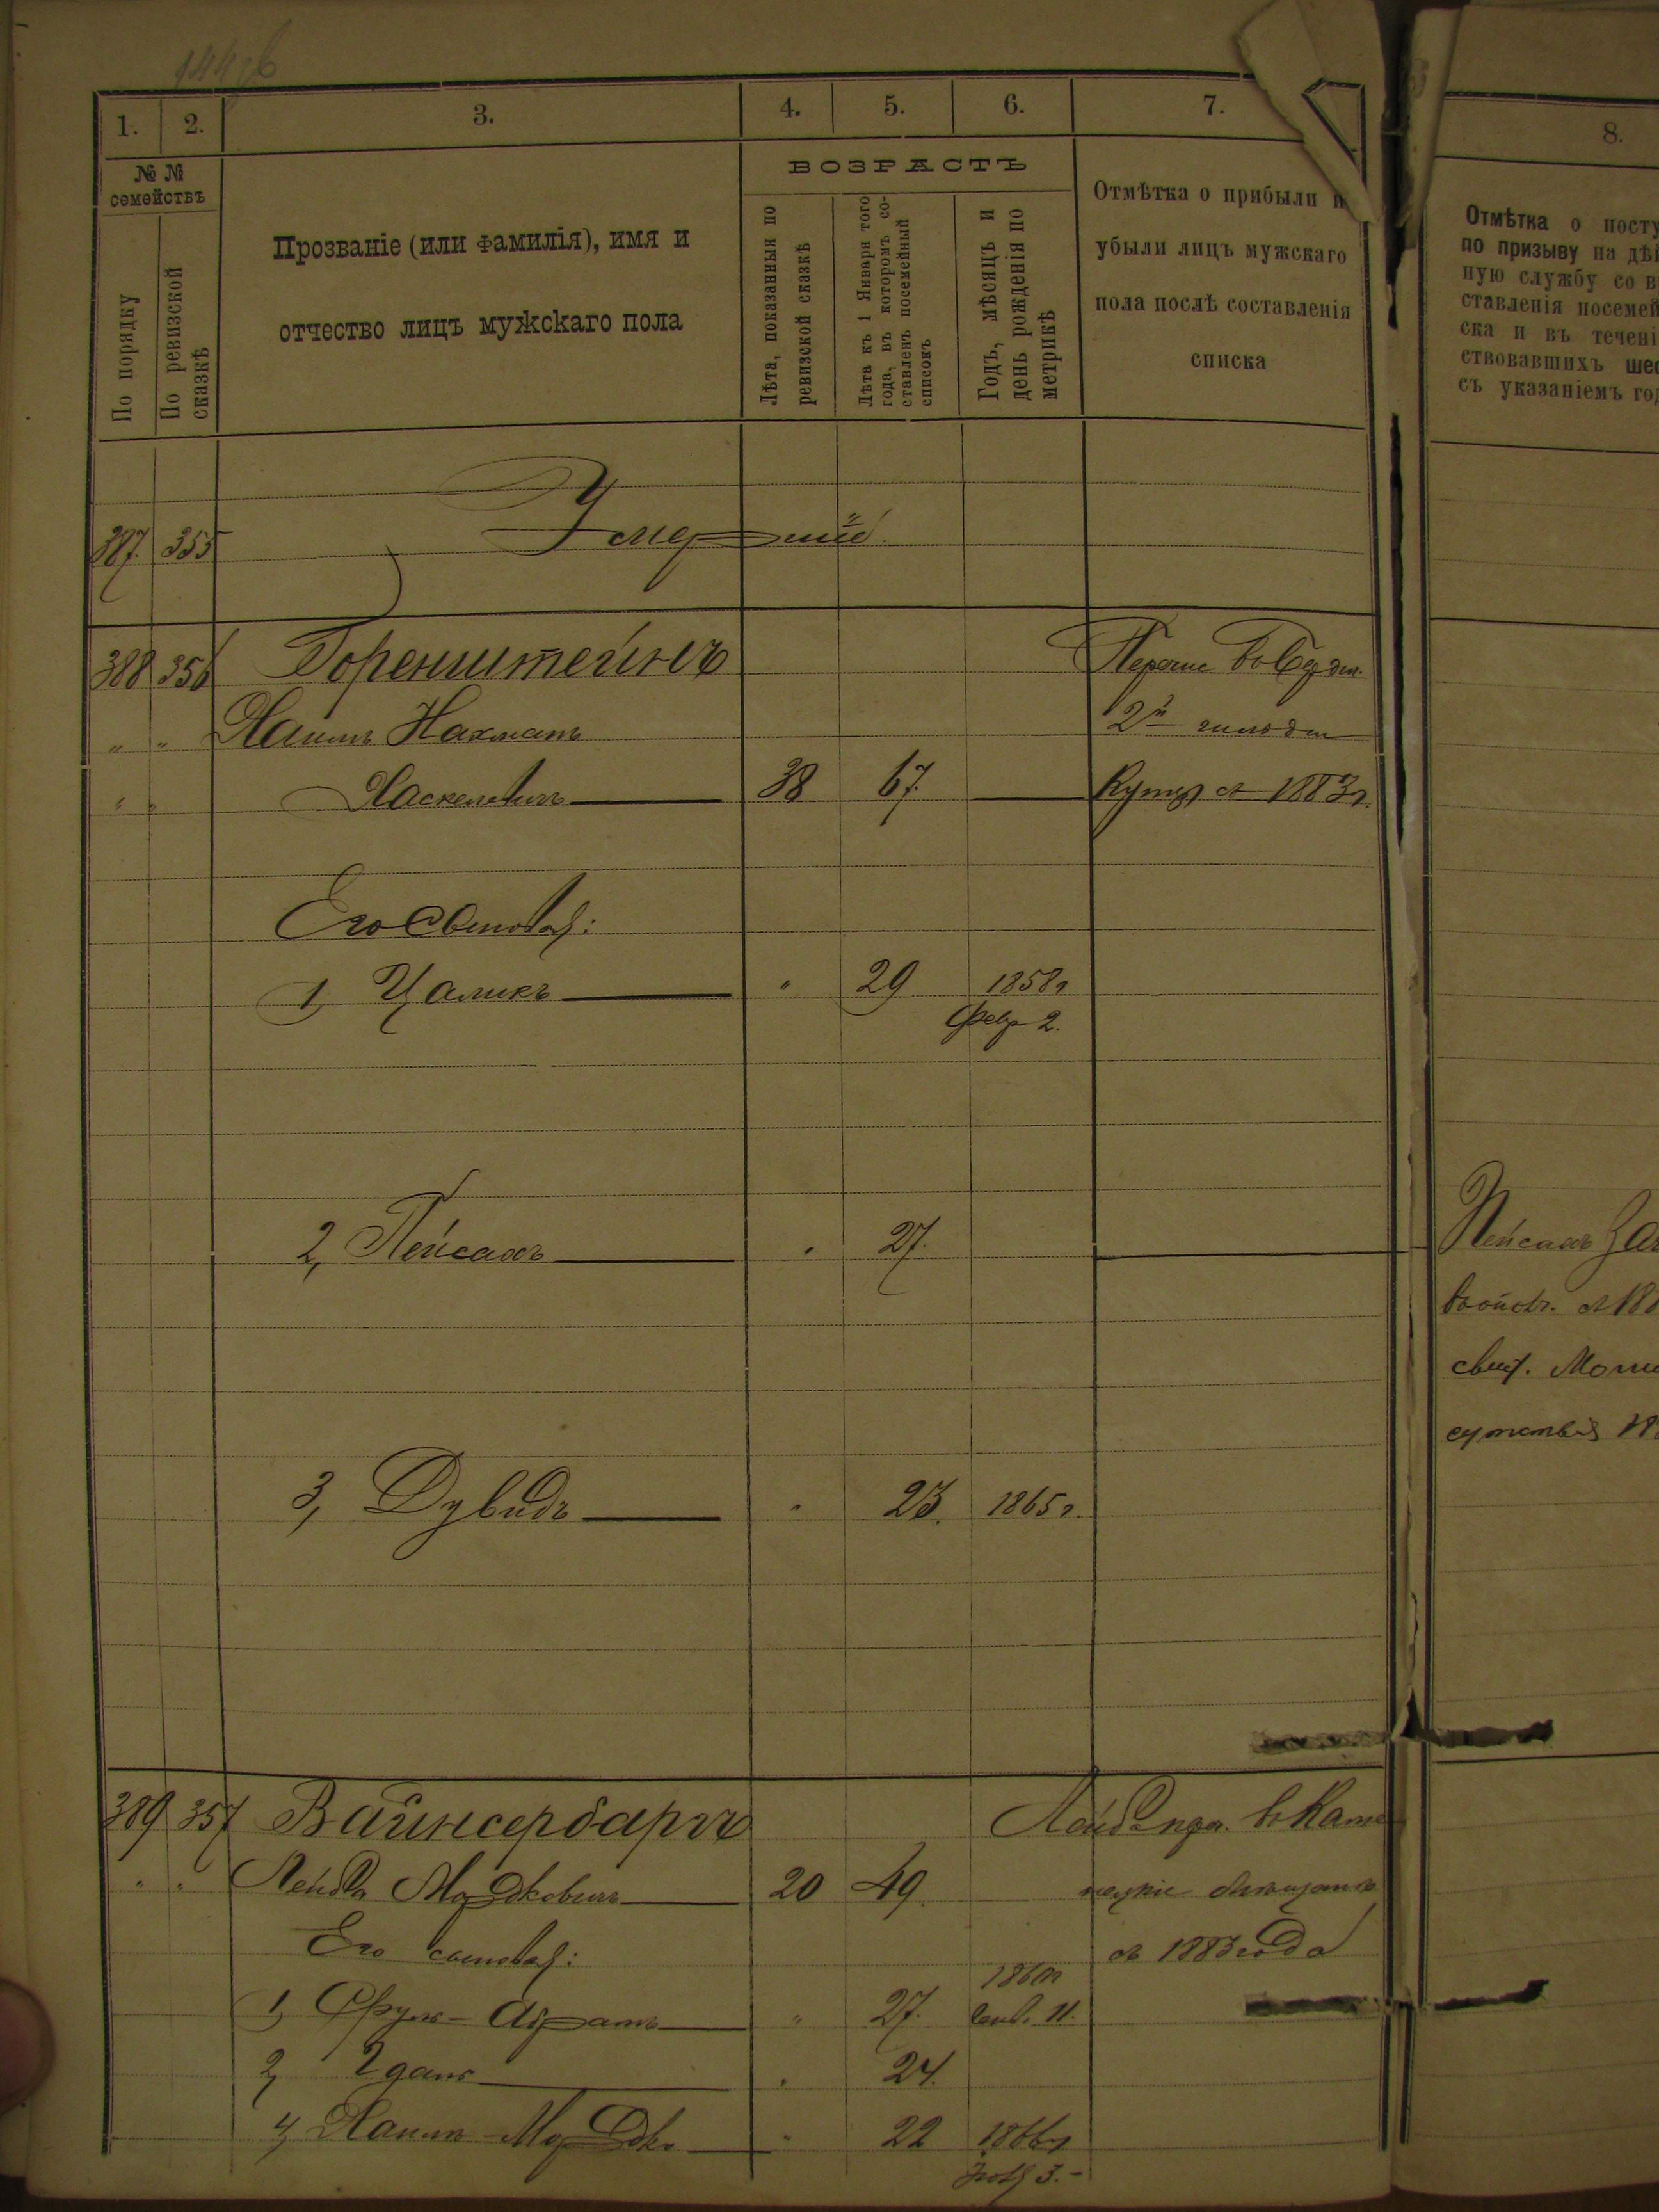 1. 2. 3. 4. 5. 6. 7. 8.
№ №
семействъ
По порядку
По ревизской
сказкѣ
Прозваніе (или фамилія), имя и
отчество лицъ мужскаго пола
ВОЗРАСТЪ
Лѣта, показанныя по
ревизской сказкѣ
Лѣта къ 1 Января того
года, въ которомъ со-
ставленъ посемейный
списокъ
Годъ, мѣсяцъ и
день рожденія по
метрикѣ
Отмѣтка о прибыли и
убыли лицъ мужскаго
пола послѣ составленія
списка
Отмѣтка о посту
по призыву на дѣй
ную службу со в
ставленія посемей
ска и въ течені
ствовавшихъ шес
съ указаніемъ год
387. 355 Умершій.
388 356 Горенштейнъ
" " Хаимъ Нахманъ 2й гильдіи
" " Хаскелевичъ 38 67. 1883г.
Его сыновья:
1, Цаликъ " 29 1858г
Февр 2.
2, Пейсахъ " 27. Пейсахъ
3, Дувидъ " 23. 1865г.
389 357 Вайнсербаргъ
" " Лейба Мордковичъ 20 49.
Его сыновья: съ 1883 года
1860г
1, Фруль-Абрамъ " 27. 11.
2, " 24.
4, Хаимъ-Мордко " 22 1866г
3.-